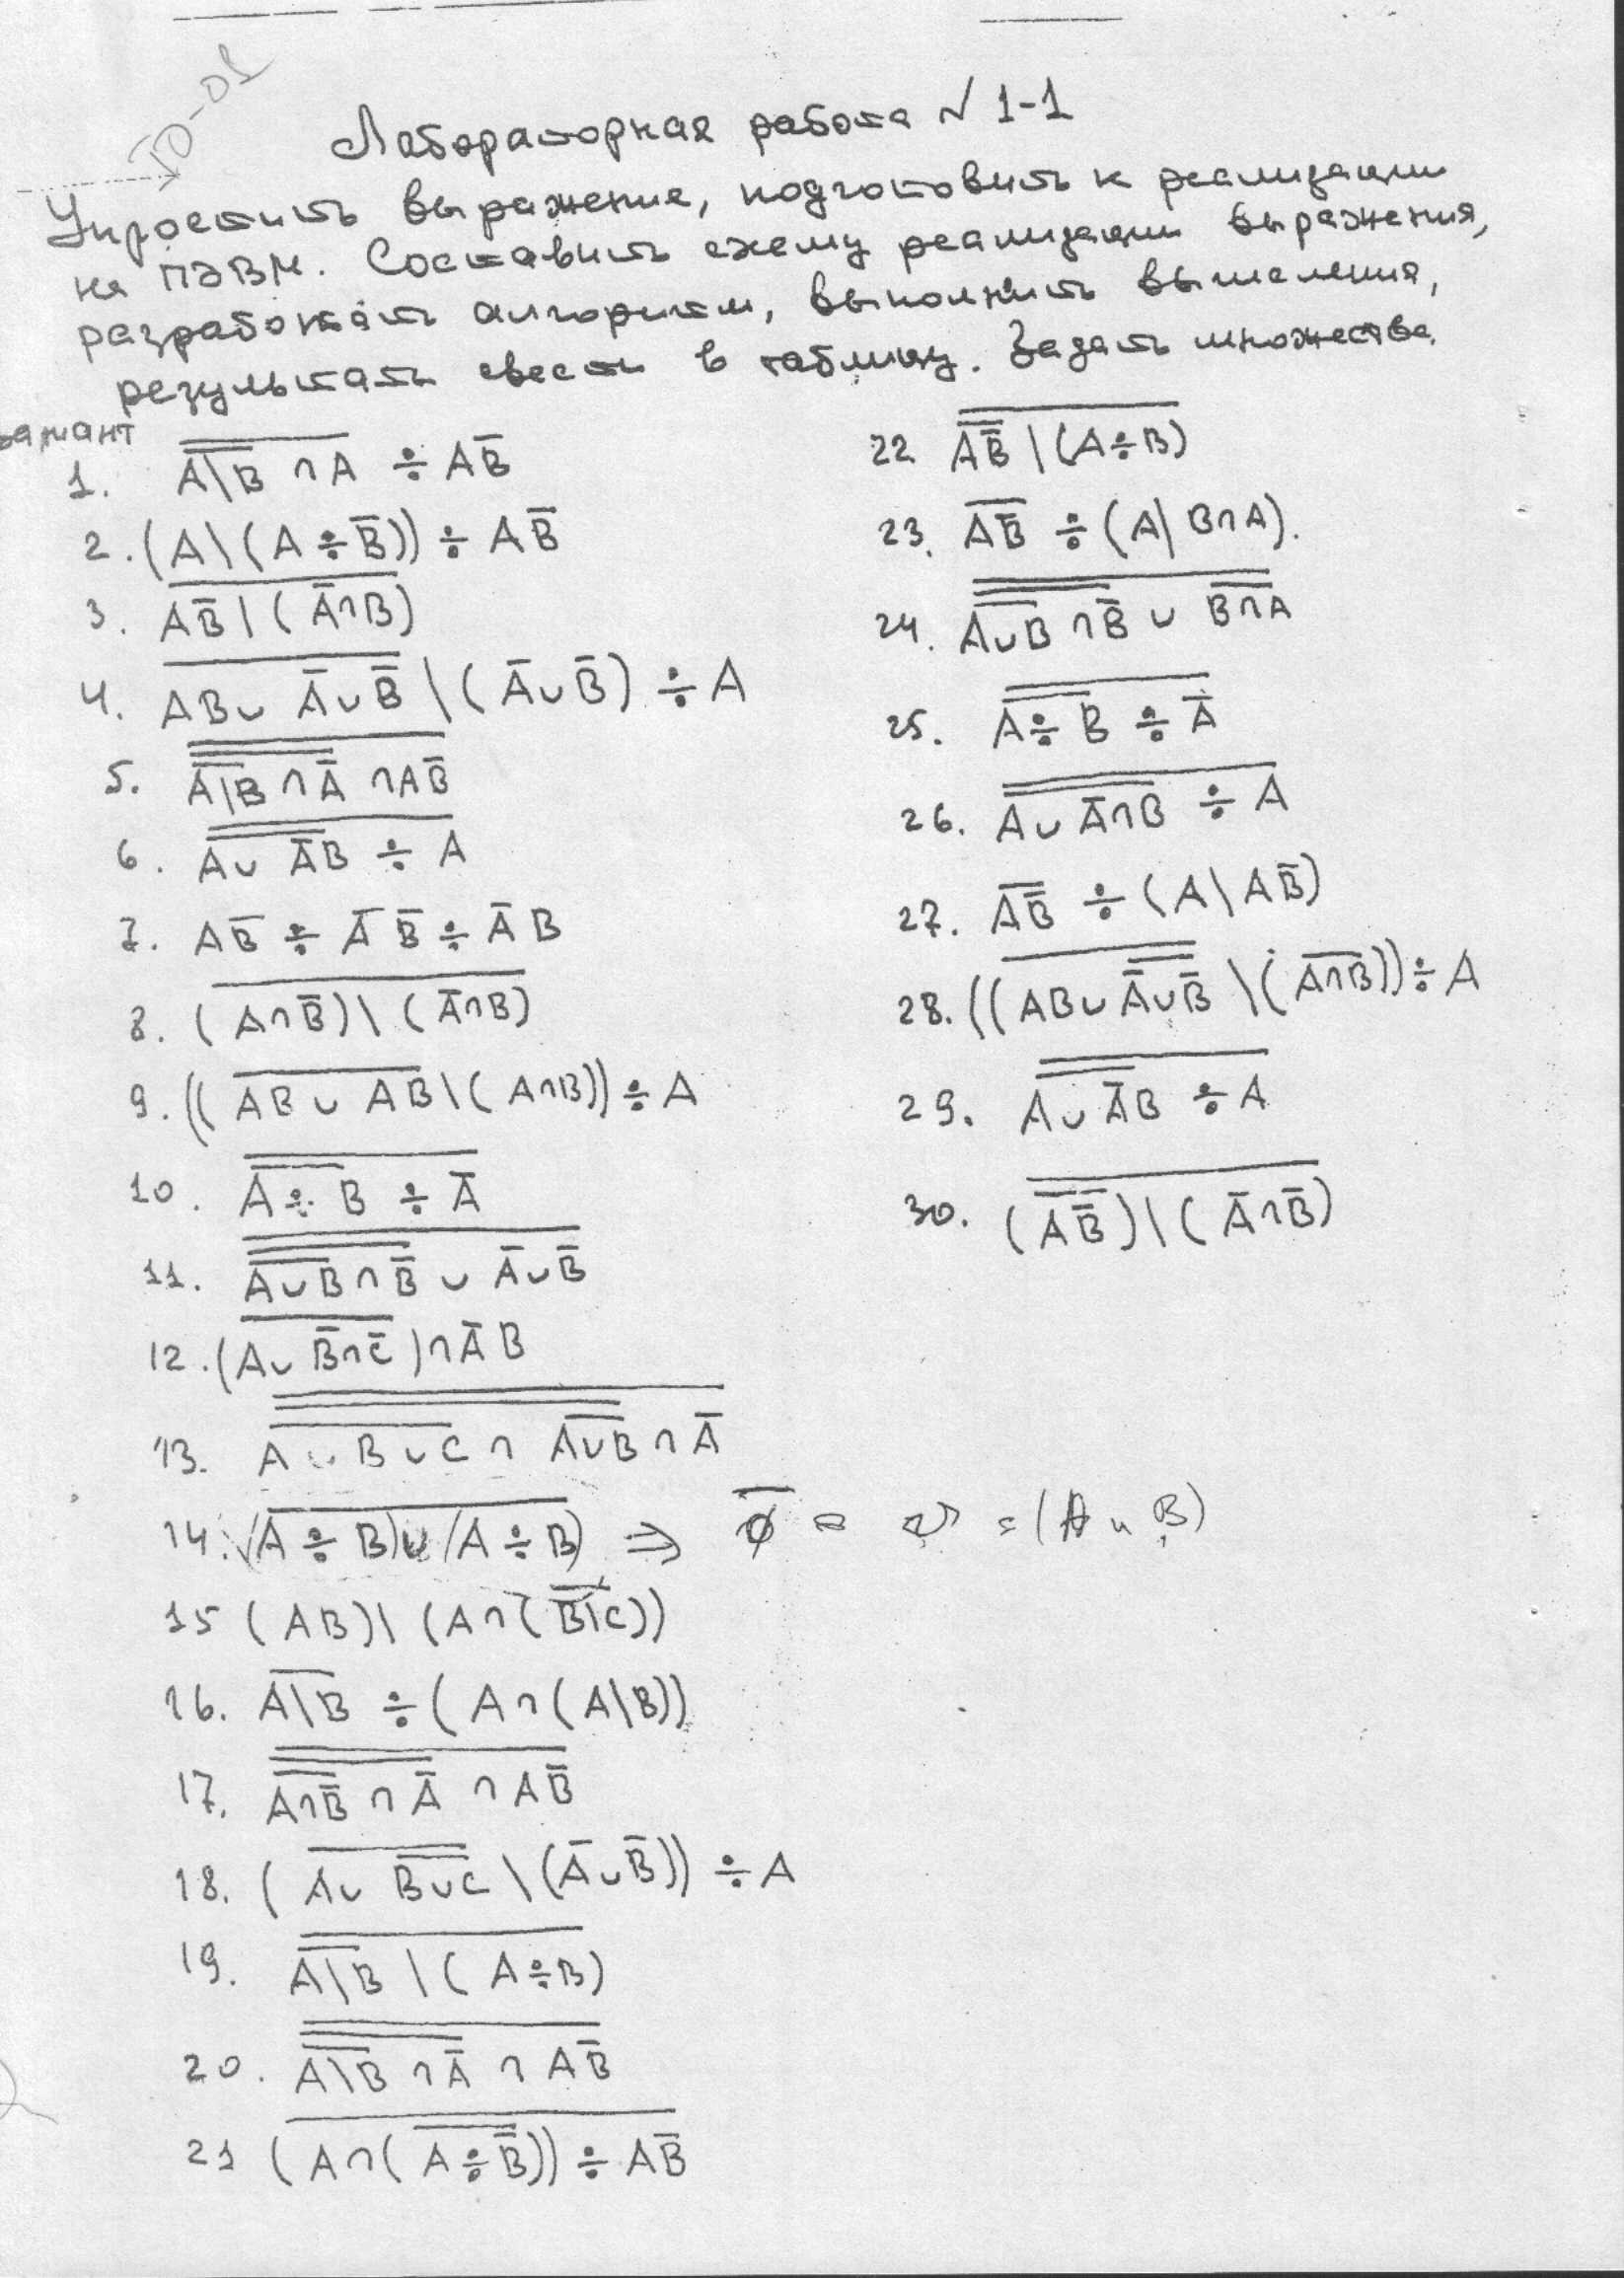 ТО-01
Лабораторная работа № 1-1
Упростить выражение, подготовить к реализации
на ПЭВМ. Составить схему реализации выражения,
разработать алгоритм, выполнить вычисления,
результаты свести в таблицу. Задать множества.
вариант
1. A̅\̅B̅ ∩ A ÷ AB̅
2. (A \ (A ÷ B̅)) ÷ AB̅
3. AB̅ \ (A̅∩B)
4. AB ∪ A̅∪B̅ \ (A̅∪B̅) ÷ A
5. A\B ∩ A̅ ∩ AB̅
6. A∪ A̅B ÷ A
7. AB̅ ÷ A̅ B̅ ÷ A̅ B
8. (A∩B̅) \ (A̅∩B)
9. ((AB ∪ AB \ (A∩B)) ÷ A
10. A ÷ B ÷ A̅
11. A∪B∩B̅ ∪ A̅∪B̅
12. (A∪ B̅∩C̅) ∩ A̅ B
13. A ∪ B ∪ C ∩ A∪B ∩ A̅
14. (A ÷ B) ∪ (A ÷ B) ⇒ ∅̅ = = (A ∪ B)
15 (AB) \ (A∩(B\C))
16. A\B ÷ (A ∩ (A\B))
17. A∩B̅ ∩ A̅ ∩ AB̅
18. (A∪ B∪C \ (A̅∪B̅)) ÷ A
19. A\B \ (A÷B)
20. A\B ∩ A̅ ∩ AB̅
21 (A∩(A÷B̅)) ÷ AB̅
22 AB̅ \ (A÷B)
23. AB̅ ÷ (A\ B∩A).
24. A∪B ∩B̅ ∪ B∩A
25. A÷B ÷ A̅
26. A∪ A̅∩B ÷ A
27. AB̅ ÷ (A \ AB̅)
28. ((AB∪ A̅∪B̅ \ (A∩B)) ÷ A
29. A∪A̅B ÷ A
30. (AB̅) \ (A̅∩B̅)